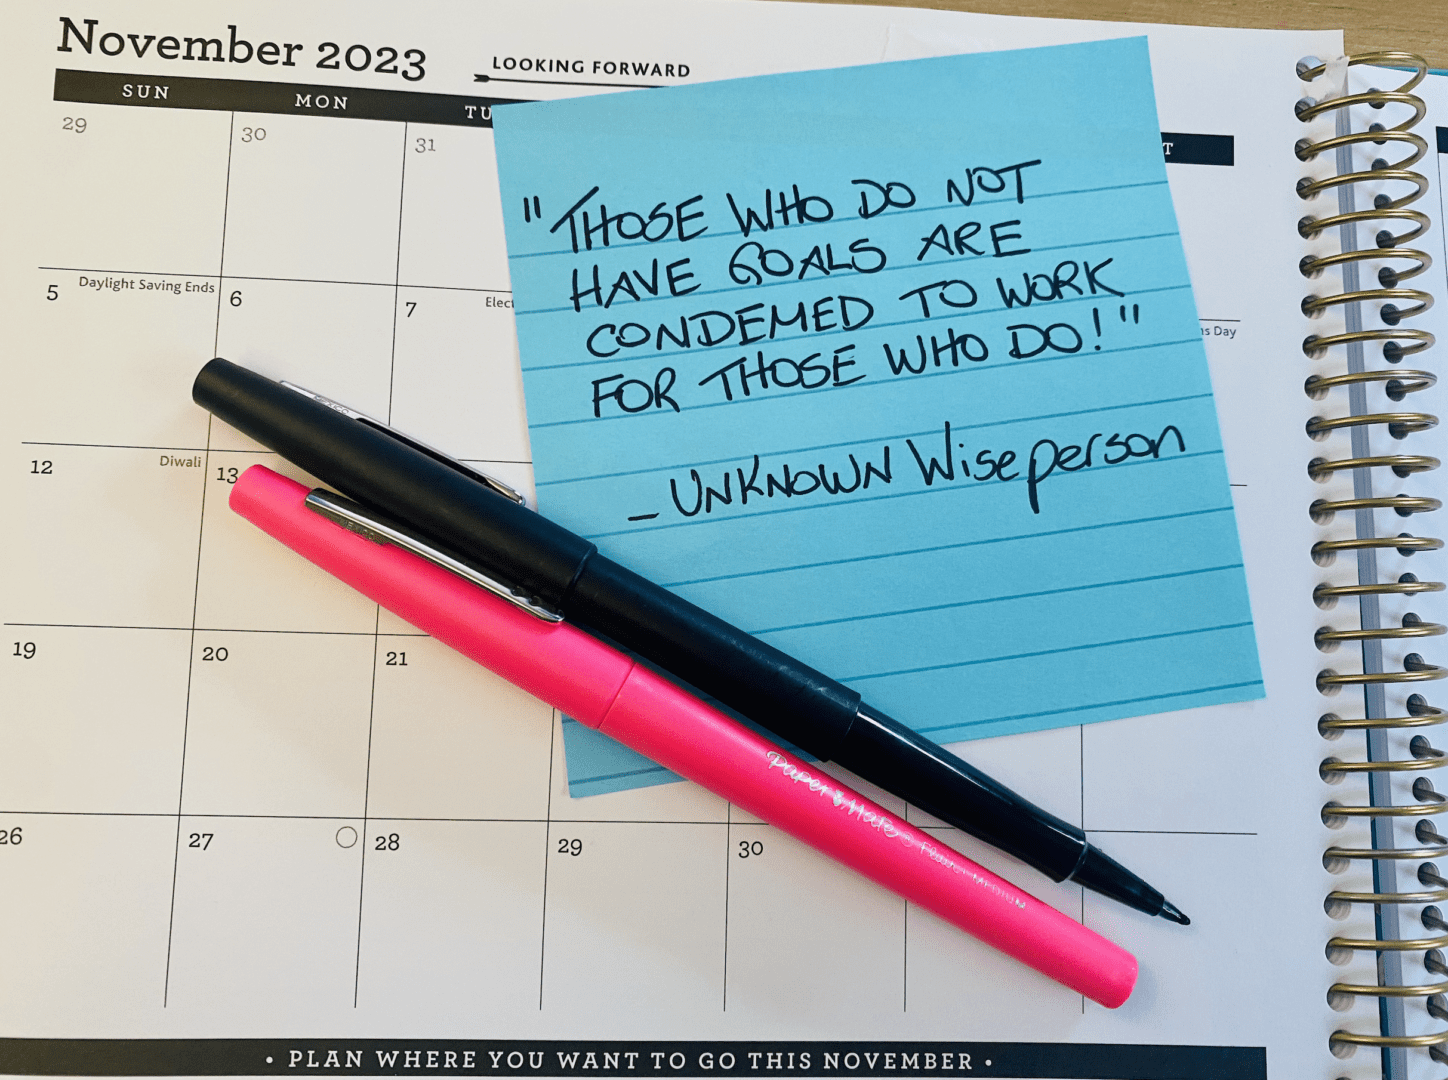 November 2023
LOOKING FORWARD
SUN MON TU T
29 30 31
5 Daylight Saving Ends 6 7 Elect
s Day
12 Diwali 13
19 20 21
26 27 28 29 30
"THOSE WHO DO NOT
HAVE GOALS ARE
CONDEMED TO WORK
FOR THOSE WHO DO!"
_ UNKNOWN Wise person
Paper Mate Flair MEDIUM
• PLAN WHERE YOU WANT TO GO THIS NOVEMBER •